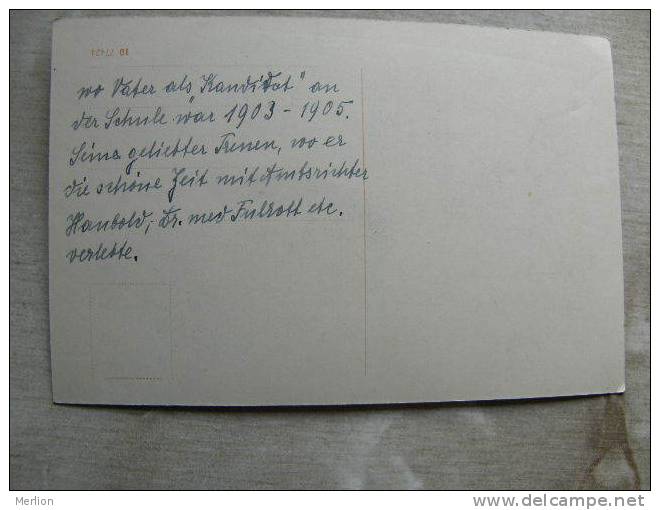 wo Vater als "Kandidat" an
der Schule war 1903 - 1905.
Seine geliebter Trenen, wo er
die schöne Zeit mit Amtsrichter
Haubold, Dr. med Fulrott etc.
verlebte.
Merlion
www.delcampe.net